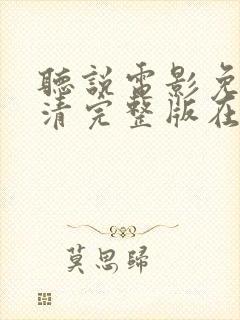 聽說電影免
清完整版在
莫思歸